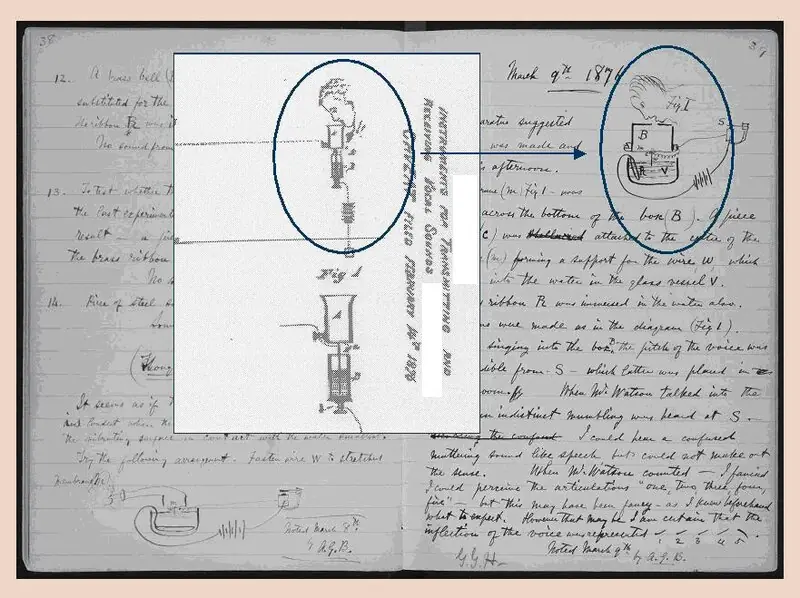 38
12. A brass bell (
substituted for the
The ribbon R was
No sound from
13. To test whether
the last experiment
result — a
the brass ribbon
No s
14. Piece of steel
Sou
(Thoug
It seems as if
the vibrating surface in contact with the water
Try the following arrangement. Fasten wire W to stretched
membrane (m)
m
Noted March 8th
by A.G.B.
INSTRUMENTS FOR TRANSMITTING AND
RECEIVING VOCAL SOUNDS
CAVEAT FILED FEBRUARY 14th 1876
Fig 1
39
March 9th 1876
Fig 1
B
S
V
suggested
was made and
is afternoon.
(m) Fig 1 - was
across the bottom of the box (B). A piece
C) was attached to the centre of the
(m) forming a support for the wire, W, which
into the water in the glass vessel V.
ribbon R was immersed in the water also.
were made as in the diagram (Fig 1).
singing into the box B, the pitch of the voice was
dible from S - which latter was placed in
room off. When Mr Watson talked into the
an indistinct mumbling was heard at S.
I could hear a confused
muttering sound like speech but could not make out
the sense. When Mr. Watson counted — I fancied
I could perceive the articulations "one, two, three, four,
five" - but this may have been fancy - as I knew beforehand
what to expect. However that may be I am certain that the
inflection of the voice was represented 1 2 3 4 5.
G.G.H. Noted March 9th by A.G.B.